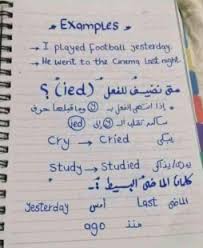 * Examples *
→ I played Football yesterday.
→ He went to the Cinema last night.
متى نضيف للفعل (ied) ؟
* إذا انتهى الفعل بـ (y) وما قبلها حرف
ساكن تقلب الـ (y) إلى (ied)
Cry → Cried يبكي
Study → Studied
كلمات الماضي البسيط :-
Yesterday أمس Last الماضي
ago منذ